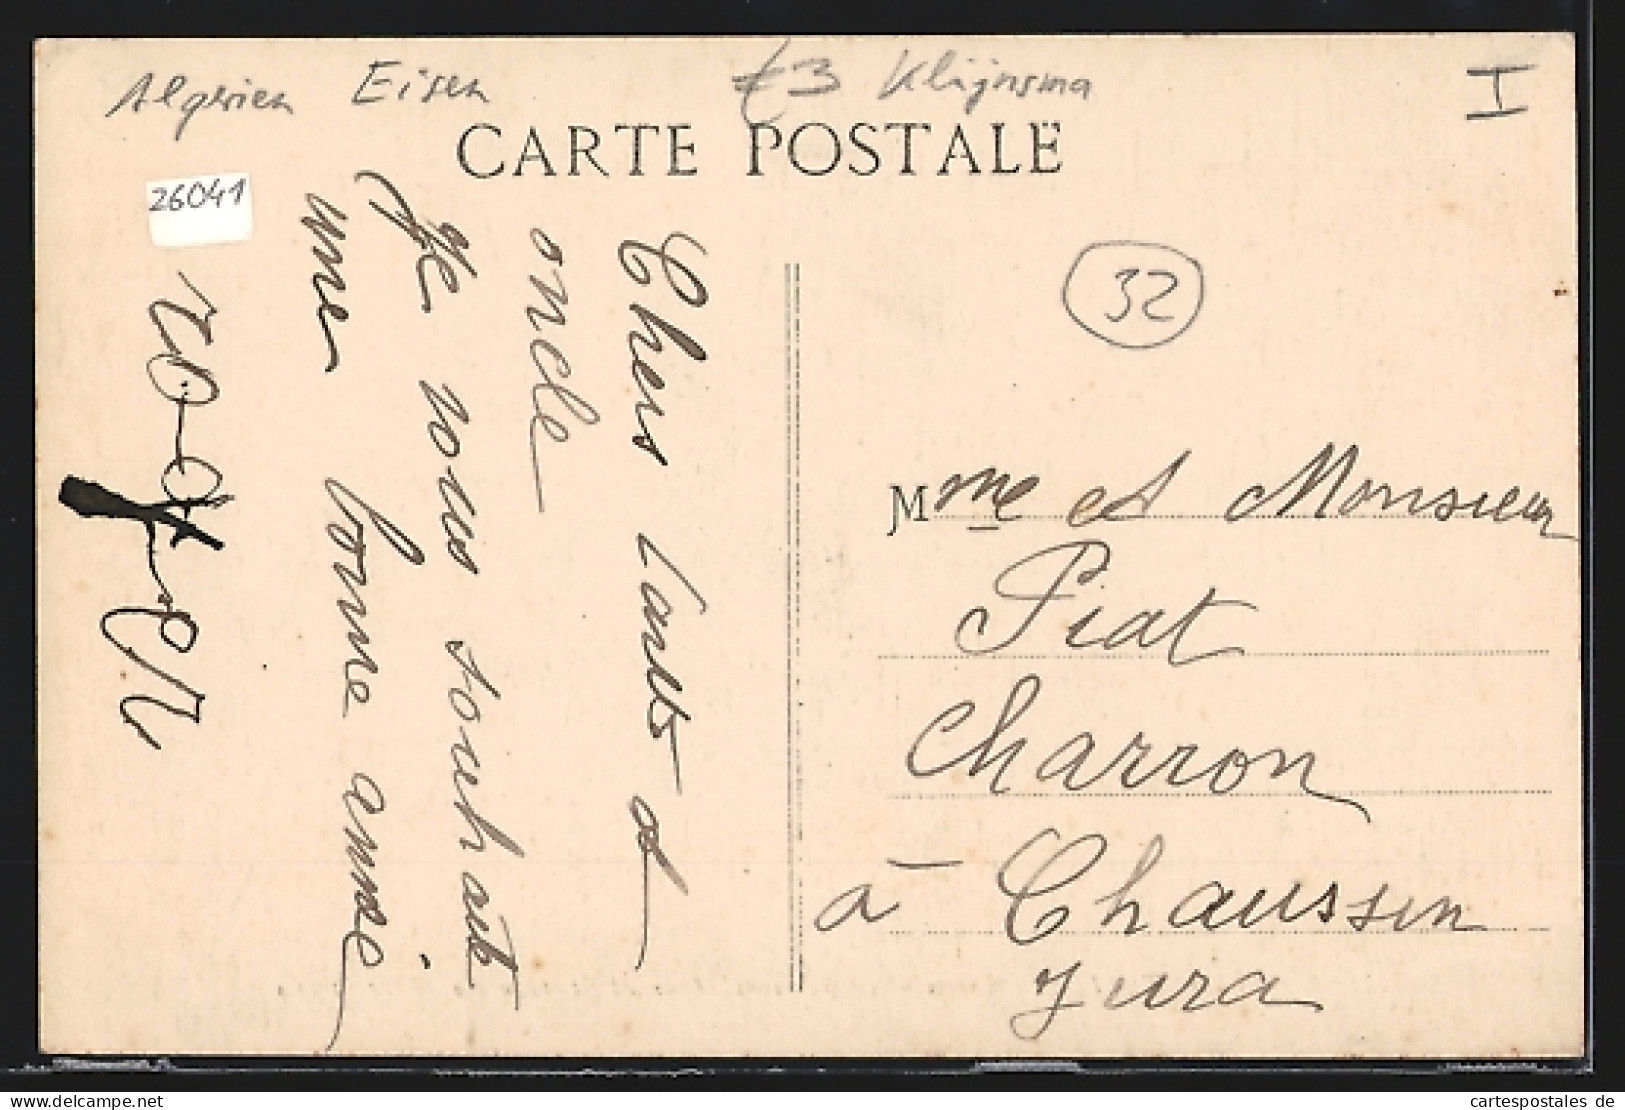 Algerien Eisen £3 Klijnsma I
CARTE POSTALE
26041
32
Chers tante et
oncle
Je vous souhait
une bonne année
Mme et Monsieur
Piat
Charron
à Chaussin
Jura
cartespostales de